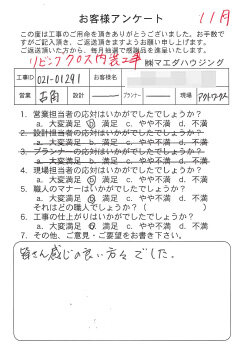 お客様アンケート
11月
この度は工事のご用命を頂きありがとうございました。お手数で
すがご記入頂き、ご返送頂きますようお願い申し上げます。
ご返送頂いた方から、毎月抽選で感謝品を進呈いたします。
リビングクロス内装工事
㈱マエダハウジング
工事ID 021-01291 お客様名
営業 吉岡 設計 プランナー 現場 アクトワークス
1. 営業担当者の応対はいかがでしたでしょうか?
a. 大変満足 b. 満足 c. やや不満 d. 不満
2. 設計担当者の応対はいかがでしたでしょうか?
a. 大変満足 b. 満足 c. やや不満 d. 不満
3. プランナーの応対はいかがでしたでしょうか?
a. 大変満足 b. 満足 c. やや不満 d. 不満
4. 現場担当者の応対はいかがでしたでしょうか?
a. 大変満足 b. 満足 c. やや不満 d. 不満
5. 職人のマナーはいかがでしたでしょうか?
a. 大変満足 b. 満足 c. やや不満 d. 不満
それはどの職人でしょうか?( )
6. 工事の仕上がりはいかがでしたでしょうか?
a. 大変満足 b. 満足 c. やや不満 d. 不満
7. その他、ご意見・ご要望をお書き下さい。
皆さん感じの良い方々でした。